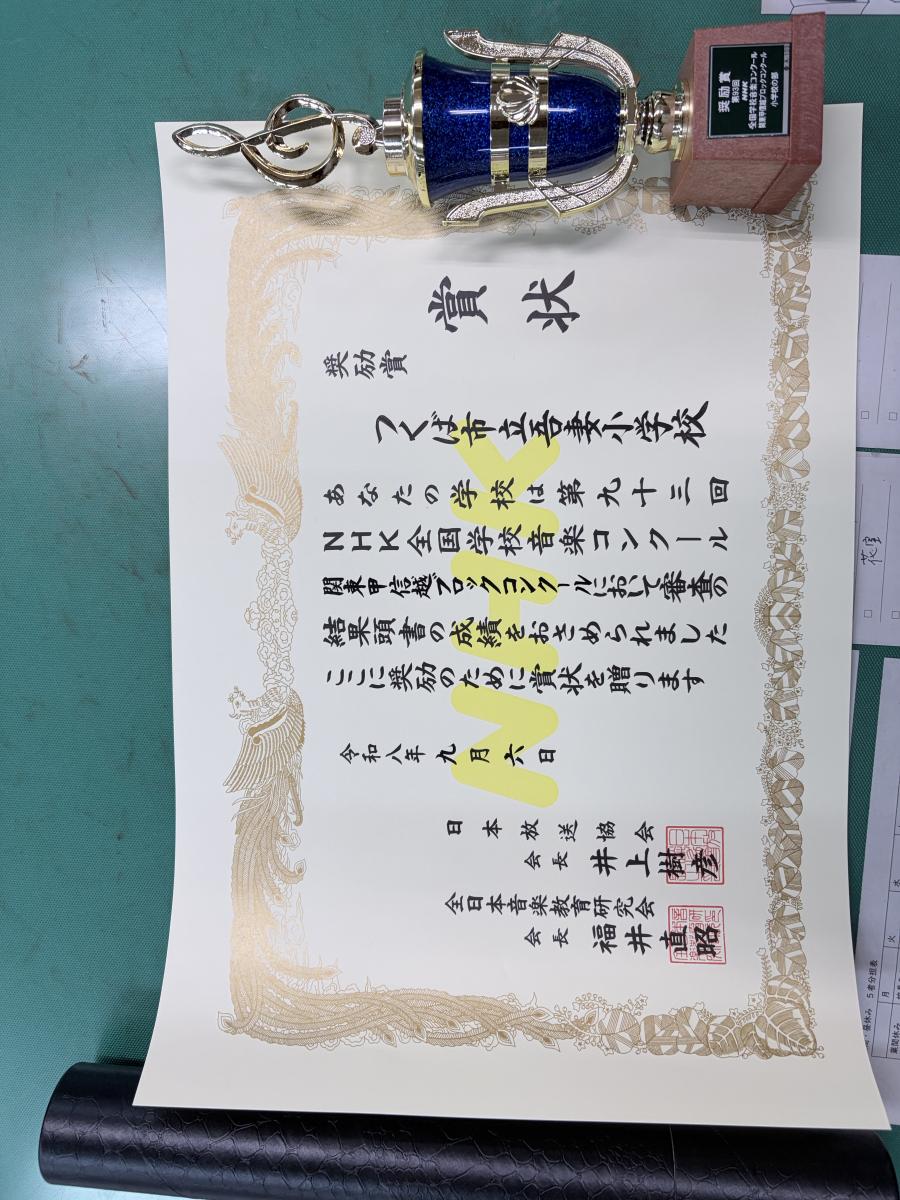 賞状
奨励賞
つくば市立吾妻小学校
あなたの学校は第九十三回
NHK全国学校音楽コンクール
関東甲信越ブロックコンクールにおいて審査の
結果頭書の成績をおさめられました
ここに奨励のために賞状を贈ります
令和八年九月六日
日本放送協会
会長 井上樹彦
全日本音楽教育研究会
会長 福井直昭
NHK
奨励賞
第93回
NHK
全国学校音楽コンクール
関東甲信越ブロックコンクール
小学校の部
花室
昼休み 5者分担表
月
火
水
業間休み